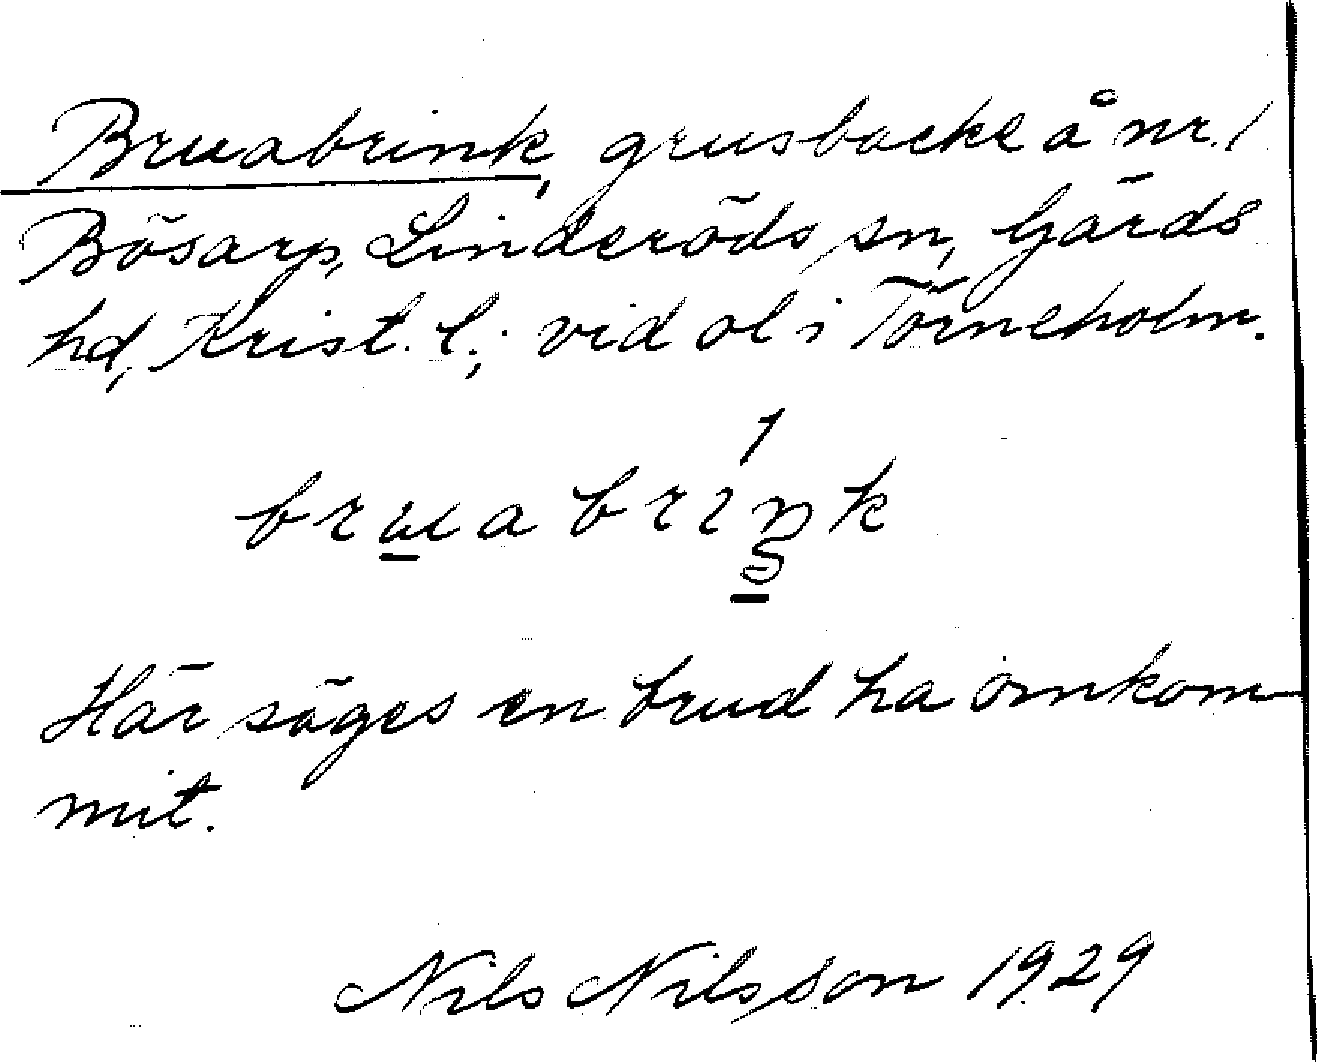 Bruabrink, grusbacke å nr. 1
Bösarp, Linderöds sn, Gärds
hd, Krist. l.; vid ol i Törneholm.
bruabrink
Här säges en brud ha omkom-
mit.
Nils Nilsson 1929